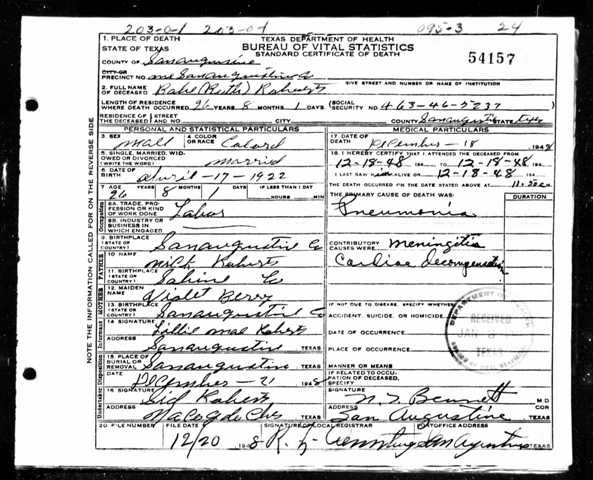 203-0-1 203-07 095-3 24
1. PLACE OF DEATH TEXAS DEPARTMENT OF HEALTH
STATE OF TEXAS BUREAU OF VITAL STATISTICS
STANDARD CERTIFICATE OF DEATH
54157
COUNTY OF Sanaugustine
CITY OR
PRECINCT NO. GIVE STREET AND NUMBER OR NAME OF INSTITUTION
2. FULL NAME
OF DECEASED Babe (Ruth) Roberts
LENGTH OF RESIDENCE
WHERE DEATH OCCURRED 26 YEARS 8 MONTHS 1 DAYS (SOCIAL SECURITY NO. 463-46-5237)
RESIDENCE OF (STREET
THE DECEASED) AND NO. CITY COUNTY Sanaugustine STATE Texas
PERSONAL AND STATISTICAL PARTICULARS
3. SEX Mall
4. COLOR OR RACE Calord
5. SINGLE, MARRIED, WIDOWED OR DIVORCED (WRITE THE WORD) married
6. DATE OF BIRTH April-17-1922
7. AGE 26 YEARS 8 MONTHS 1 DAYS IF LESS THAN 1 DAY HOURS MIN.
8A. TRADE, PROFESSION OR KIND OF WORK DONE Labor
8B. INDUSTRY OR BUSINESS IN WHICH ENGAGED
9. BIRTHPLACE (STATE OR COUNTRY) Sanaugustine Co
10. NAME Milt Roberts
11. BIRTHPLACE (STATE OR COUNTRY) Sabine Co
12. MAIDEN NAME Violet Berry
13. BIRTHPLACE (STATE OR COUNTRY) Sanaugustine Co
14. SIGNATURE Lillie Mae Roberts
ADDRESS Sanaugustine TEXAS
15. PLACE OF BURIAL OR REMOVAL Sanaugustine TEXAS
DATE DeCember-21 1948
16. SIGNATURE Sid Roberts
ADDRESS NaCogdoChes TEXAS
MEDICAL PARTICULARS
17. DATE OF DEATH DeCember-18 1948
18. I HEREBY CERTIFY THAT I ATTENDED THE DECEASED FROM
12-18-48 TO 12-18-48
I LAST SAW ALIVE ON 12-18-48
THE DEATH OCCURRED ON THE DATE STATED ABOVE AT
THE PRIMARY CAUSE OF DEATH WAS: DURATION
Pneumonia
CONTRIBUTORY CAUSES WERE: meningitis
Cardiac Decompensation
IF NOT DUE TO DISEASE, SPECIFY WHETHER:
ACCIDENT, SUICIDE, OR HOMICIDE
DATE OF OCCURRENCE
PLACE OF OCCURRENCE
MANNER OR MEANS
IF RELATED TO OCCUPATION OF DECEASED, SPECIFY
SIGNATURE Bennett M D
ADDRESS San Augustine TEXAS
20. FILE NUMBER FILE DATE 12/20 1948
SIGNATURE OF LOCAL REGISTRAR POSTOFFICE ADDRESS San Augustine TEXAS
RECEIVED
NOTE THE INFORMATION CALLED FOR ON THE REVERSE SIDE